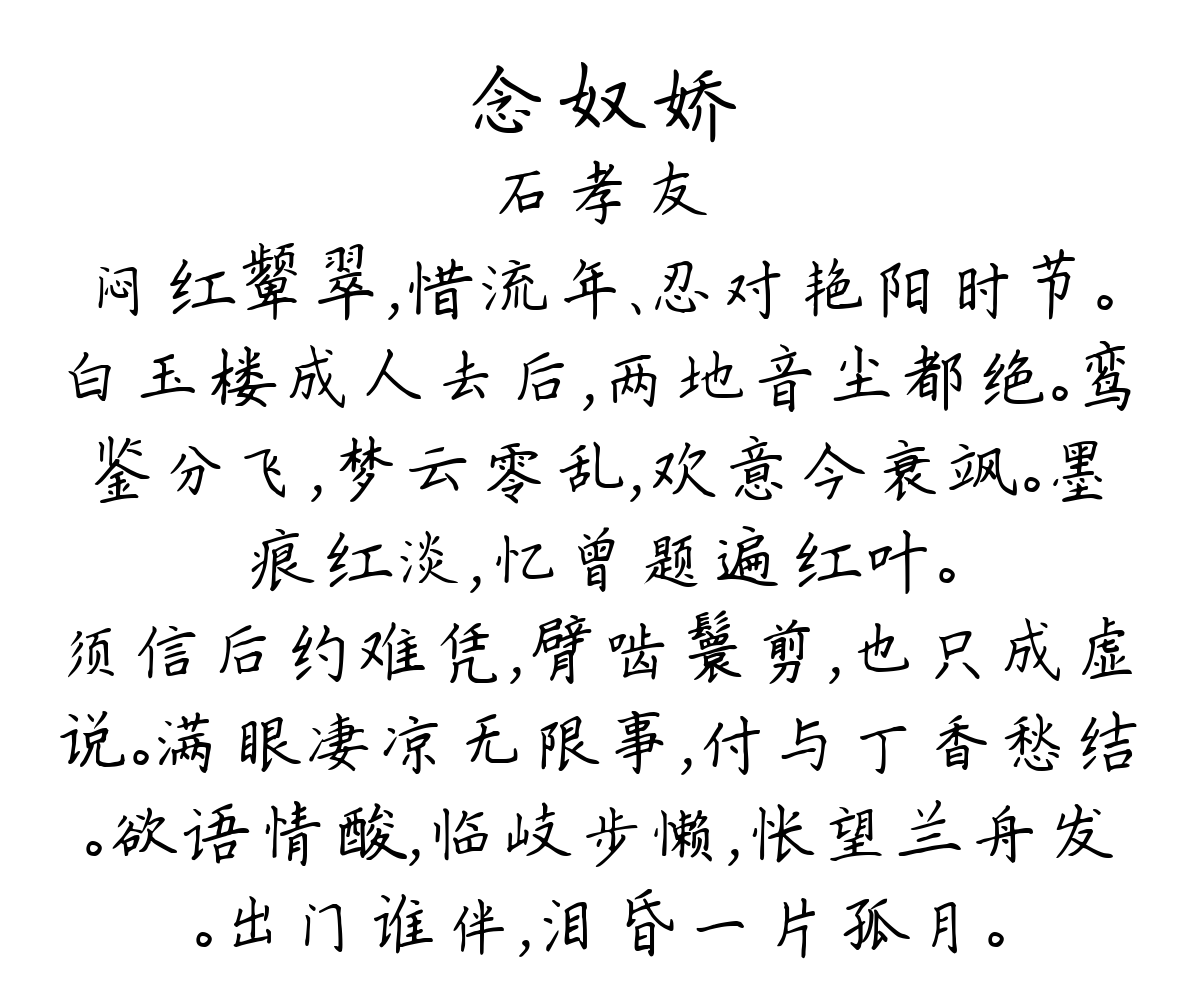 念奴娇
石孝友
闷红颦翠,惜流年、忍对艳阳时节。
白玉楼成人去后,两地音尘都绝。鸾
鉴分飞,梦云零乱,欢意今衰飒。墨
痕红淡,忆曾题遍红叶。
须信后约难凭,臂啮鬟剪,也只成虚
说。满眼凄凉无限事,付与丁香愁结
。欲语情酸,临岐步懒,怅望兰舟发
。出门谁伴,泪昏一片孤月。